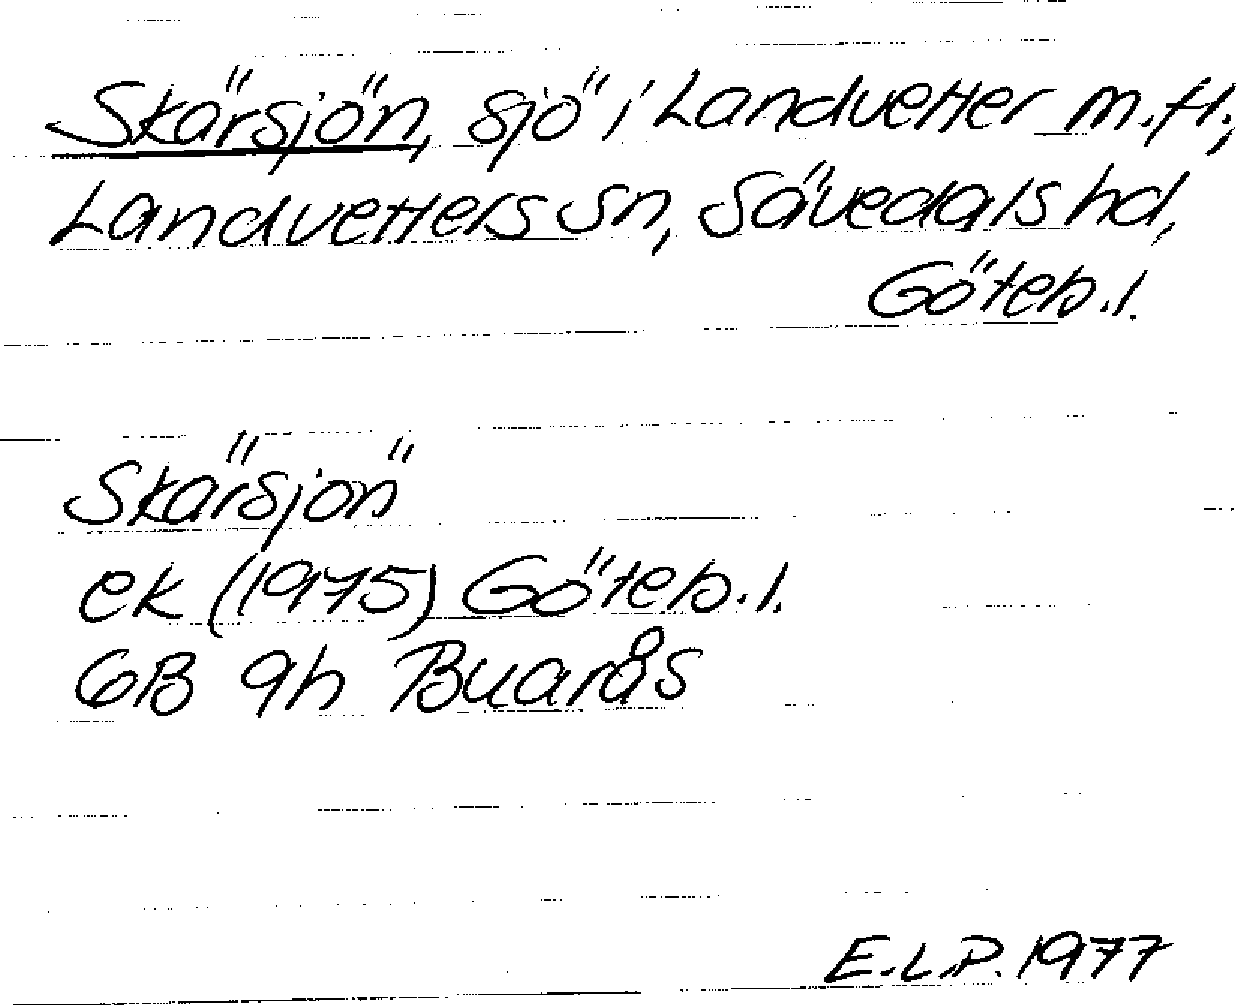 Skärsjön, sjö i Landvetter m.fl.,
Landvetters sn, Sävedals hd,
Göteb.l.
Skärsjön
ek (1975) Göteb.l.
6B 9h Buarås
E.L.P. 1977